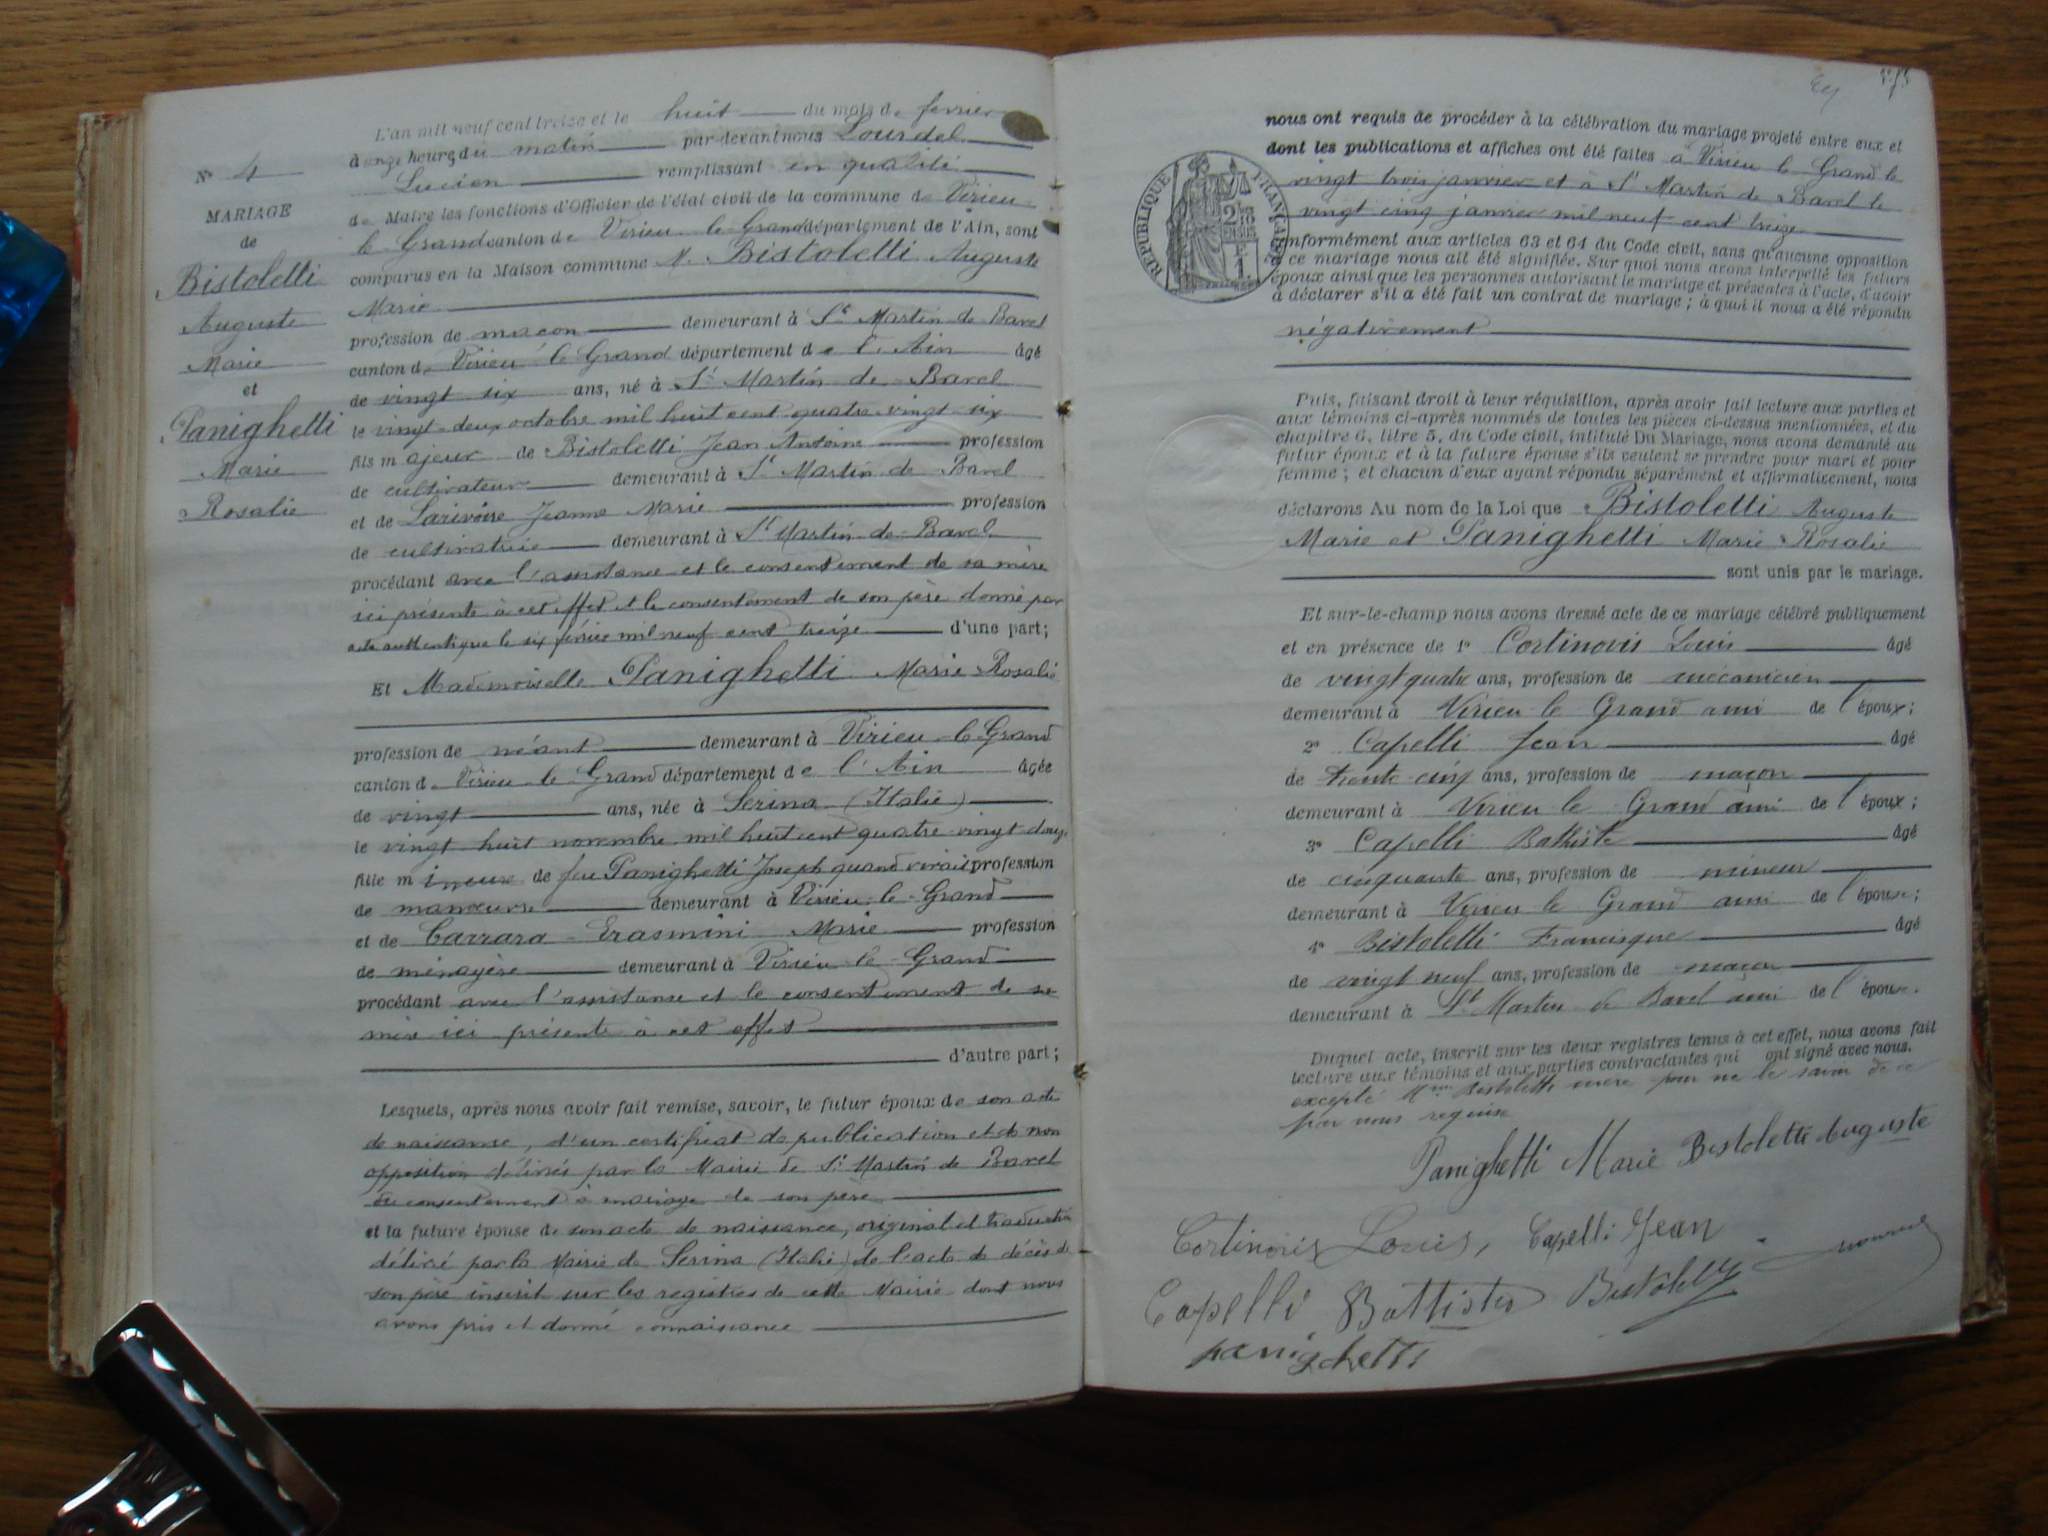 N° 4
MARIAGE
de
Bistoletti
Auguste
Marie
et
Panighetti
Marie
Rosalie
L'an mil neuf cent treize et le huit du mois de fevrier
à onze heures du matin par-devant nous Lourdel
Lucien remplissant en qualité
de Maire les fonctions d'Officier de l'état civil de la commune de Virieu
le Grand canton de Virieu le Grand département de l'Ain, sont
comparus en la Maison commune M. Bistoletti Auguste
Marie
profession de maçon demeurant à St Martin de Bavel
canton de Virieu le Grand département de l'Ain âgé
de vingt six ans, né à St Martin de Bavel
le vingt-deux octobre mil huit cent quatre vingt six
fils majeur de Bistoletti Jean Antoine profession
de cultivateur demeurant à St Martin de Bavel
et de Larivoire Jeanne Marie profession
de cultivatrice demeurant à St Martin de Bavel
procédant avec l'assistance et le consentement de sa mère
ici présente à cet effet et le consentement de son père donné par
acte authentique le six février mil neuf cent treize d'une part;
Et Mademoiselle Panighetti Marie Rosalie
profession de néant demeurant à Virieu-le-Grand
canton de Virieu-le-Grand département de l'Ain âgée
de vingt ans, née à Serina (Italie)
le vingt huit novembre mil huit cent quatre-vingt douze
fille mineure de feu Panighetti Joseph quand vivait profession
de manœuvre demeurant à Virieu-le-Grand
et de Carrara-Erasmini Marie profession
de ménagère demeurant à Virieu-le-Grand
procédant avec l'assistance et le consentement de sa
mère ici présente à cet effet
d'autre part;
Lesquels, après nous avoir fait remise, savoir, le futur époux de son acte
de naissance, d'un certificat de publication et de non
opposition délivrés par la Mairie de St Martin de Bavel
du consentement à mariage de son père
et la future épouse de son acte de naissance, original et traduction
délivré par la Mairie de Serina (Italie) de l'acte de décès de
son père inscrit sur les registres de cette Mairie dont nous
avons pris et donné connaissance
nous ont requis de procéder à la célébration du mariage projeté entre eux et
dont les publications et affiches ont été faites à Virieu le Grand le
vingt trois janvier et à St Martin de Bavel le
vingt cinq janvier mil neuf cent treize
RÉPUBLIQUE FRANÇAISE
conformément aux articles 63 et 64 du Code civil, sans qu'aucune opposition
ce mariage nous ait été signifiée. Sur quoi nous avons interpellé les futurs
époux ainsi que les personnes autorisant le mariage et présentes à l'acte, d'avoir
à déclarer s'il a été fait un contrat de mariage; à quoi il nous a été répondu
négativement
Puis, faisant droit à leur réquisition, après avoir fait lecture aux parties et
aux témoins ci-après nommés de toutes les pièces ci-dessus mentionnées, et du
chapitre 6, titre 5, du Code civil, intitulé Du Mariage, nous avons demandé au
futur époux et à la future épouse s'ils veulent se prendre pour mari et pour
femme; et chacun d'eux ayant répondu séparément et affirmativement, nous
déclarons Au nom de la Loi que Bistoletti Auguste
Marie et Panighetti Marie Rosalie
sont unis par le mariage.
Et sur-le-champ nous avons dressé acte de ce mariage célébré publiquement
et en présence de 1° Cortinovis Louis âgé
de vingt quatre ans, profession de mécanicien
demeurant à Virieu le Grand ami de l'époux;
2° Capelli Jean âgé
de trente cinq ans, profession de maçon
demeurant à Virieu le Grand ami de l'époux;
3° Capelli Battiste âgé
de cinquante ans, profession de mineur
demeurant à Virieu le Grand ami de l'épouse;
4° Bistoletti Francisque âgé
de vingt neuf ans, profession de maçon
demeurant à St Martin de Bavel ami de l'épouse.
Duquel acte, inscrit sur les deux registres tenus à cet effet, nous avons fait
lecture aux témoins et aux parties contractantes qui ont signé avec nous.
excepté Mme Bistoletti mère pour ne le savoir de ce
par nous requise
Panighetti Marie Bistoletti Auguste
Cortinovis Louis, Capelli Jean
Capelli Battista Bistoletti
panigchetti